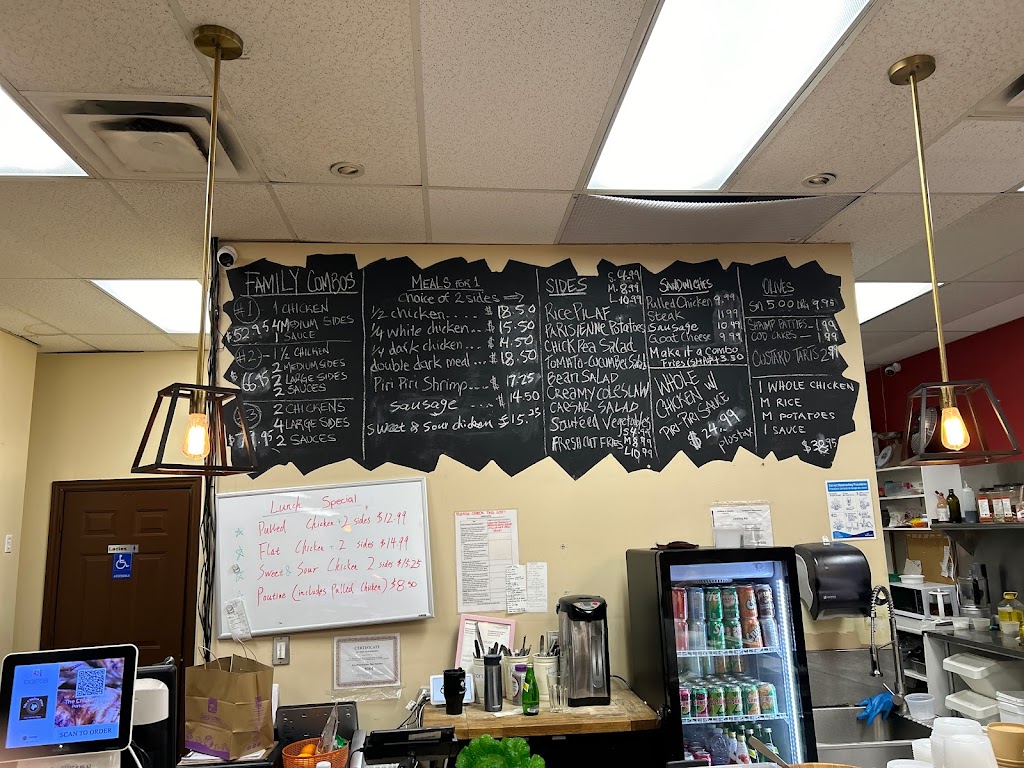 FAMILY COMBOS
#1) 1 CHICKEN
4 MEDIUM SIDES
$52.95 1 SAUCE
#2) 1 1/2 CHICKEN
2 MEDIUM SIDES
2 LARGE SIDES
$66.95 2 SAUCES
#3) 2 CHICKENS
4 LARGE SIDES
2 SAUCES
MEALS FOR 1
choice of 2 sides
1/2 chicken.... $18.50
1/4 white chicken... $15.50
1/4 dark chicken... $14.50
double dark meal... $18.50
Piri Piri Shrimp.... $17.25
sausage ... $14.50
sweet & sour chicken $15.25
SIDES
S. 4.99
M. 8.99
L. 10.99
RICE PILAF
PARISIENNE Potatoes
CHICK Pea Salad
TOMATO-CUCUMBER Salad
Bean SALAD
CREAMY COLESLAW
CAESAR SALAD
Sauteed Vegetables
FRESH CUT FRIES
S 4.99
M 8.99
L 10.99
SANDWICHES
Pulled Chicken 9.99
Steak 11.99
Sausage 10.99
Goat Cheese 9.99
Make it a Combo
WHOLE
CHICKEN W/
PIRI PIRI SAUCE
$24.99
plus tax
OLIVES
SHRIMP PATTIES 1.99
COD CAKES 1.99
CUSTARD TARTS 2.99
1 WHOLE CHICKEN
M RICE
M POTATOES
1 SAUCE
$38.95
Lunch Special
Pulled Chicken + 2 sides $12.99
Flat Chicken + 2 sides $14.99
Sweet & Sour Chicken 2 sides $15.25
Poutine (includes Pulled Chicken) $8.50
Ladies
CERTIFICATE
SCAN TO ORDER